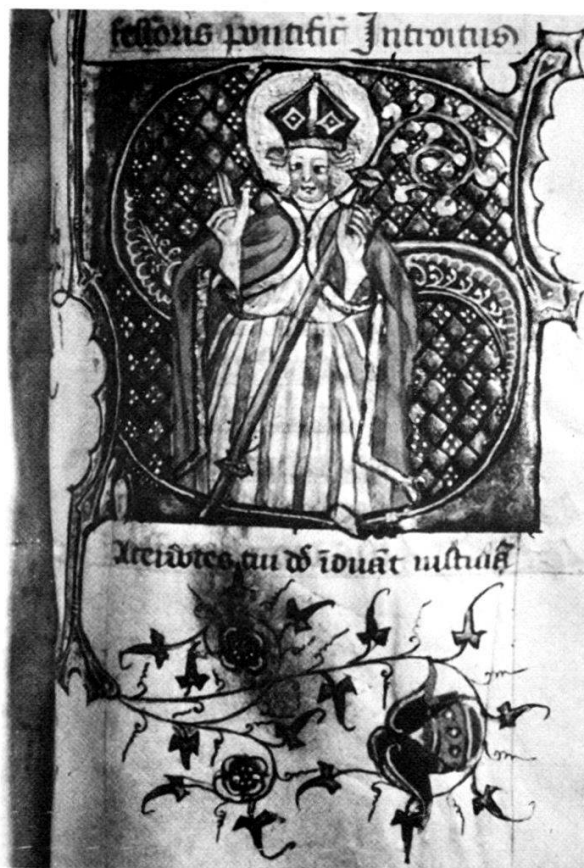 fessoris pontific̄ Introitus
S
acerdotes tui dō īduāt iusticiā